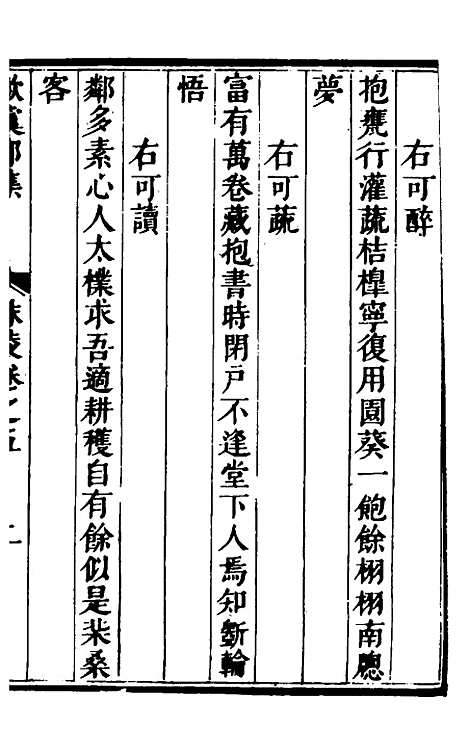 右可醉
抱甕行灌蔬桔槹寧復用園葵一飽餘栩栩南牕
夢
右可蔬
富有萬卷藏抱書時閉戸不逢堂下人焉知斲輪
悟
右可讀
鄰多素心人太樸求吾適耕穫自有餘似是柴桑
客
秣陵卷之五